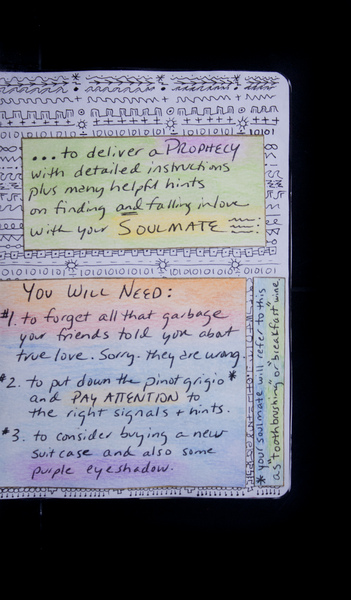 ... to deliver a PROPHECY
with detailed instructions
plus many helpful hints
on finding and falling in love
with your SOULMATE
YOU WILL NEED:
#1. to forget all that garbage
your friends told you about
true love. Sorry. they are wrong.
#2. to put down the pinot grigio*
and PAY ATTENTION to
the right signals + hints.
#3. to consider buying a new
suitcase and also some
purple eyeshadow.
* your soulmate will refer to this
as "toothbrushing" or "breakfast" wine